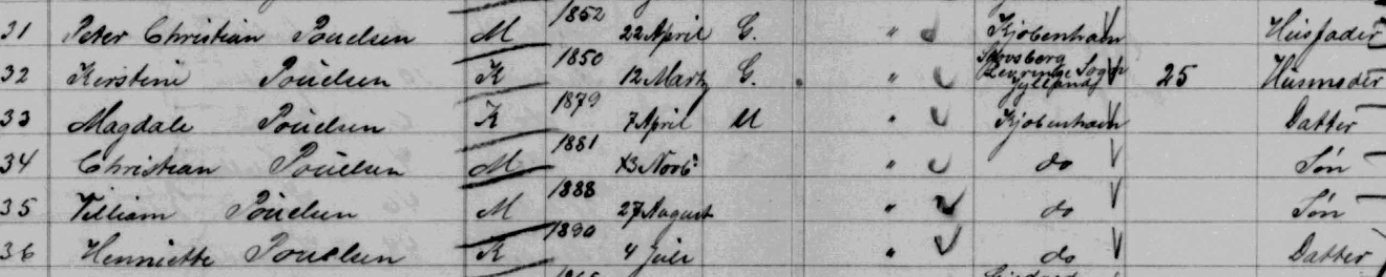 31 Peter Christian Poulsen M 1852 22 April G. " Kjøbenhavn Husfader
32 Kirstine Poulsen K 1850 12 Marts G. " Levringe Sogn Jylland 25 Husmoder
33 Magdale Poulsen K 1879 7 April U " Kjøbenhavn Datter
34 Christian Poulsen M 1881 13 Novb: " do Søn
35 Villiam Poulsen M 1888 27 August " do Søn
36 Henriette Poulsen K 1890 4 Juli " do Datter